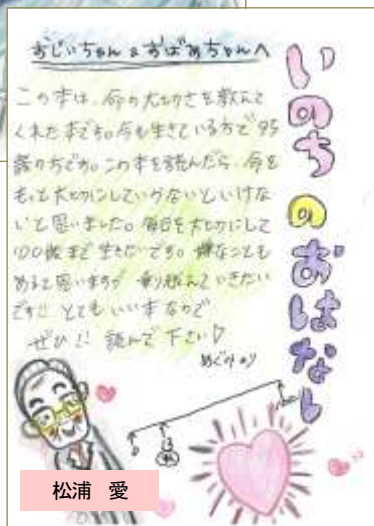 いのちのおはなし
おじいちゃん&おばあちゃんへ
この本は、命の大切さを教えて
くれた本です。今も生きている方で95
歳の方です。この本を読んだら、命を
もっと大切にしていかないといけな
いと思いました。毎日を大切にして
100歳まで生きたいです。嫌なことも
あると思いますが乗り越えていきたい
です!! とてもいい本なので
ぜひ!! 読んで下さい♡
めぐみより
松浦 愛